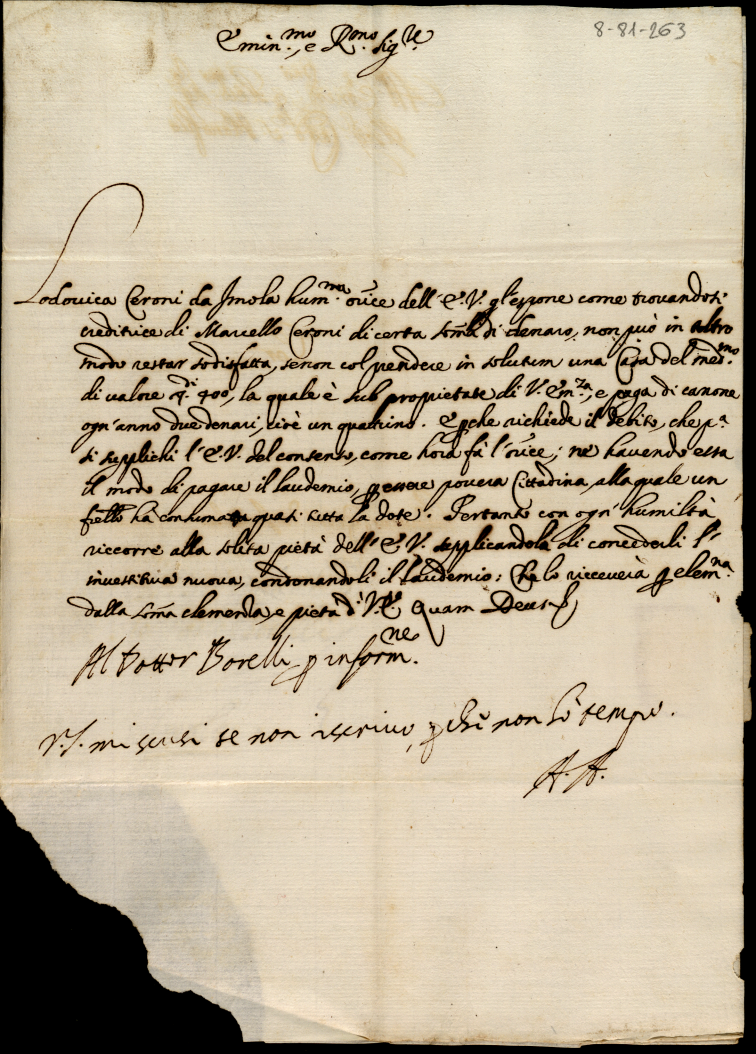 8-81-263
Emin.mo, e R.mo Sig.re
Lodovica Ceroni da Imola hum.ma orãce dell'E.V. gl'espone come trovandosi
creditrice di Marcello Ceroni di certa somã di denaro, non può in altro
modo restar sodisfatta, senon col prendere in solutum una Casa del med.mo
di valore di 400, la quale è sub proprietate di V. Em.za, e paga di canone
ogn'anno due denari, cioè un quatrino. E pche richiede il debito, che p.a
si supplichi l'E.V. del consenso, come hora fà l'orãce; nè havendo essa
il modo di pagare il laudemio, p essere povera Cittadina, alla quale un
fiello hà consumata quasi tutta la dote. Pertanto con ogn'humiltà
riccorre alla solita pietà dell'E.V. supplicandola di concederli l'
investitura nuova, condonandoli il laudemio: Cha lo riceverà p elem.na
dalla somã clemenza, e pietà d'V.E. Quam Deus &
Al Dottor Borelli p inform.ne
V.S. mi scusi se non iscrivo, pchè non hò tempo.
A. A.